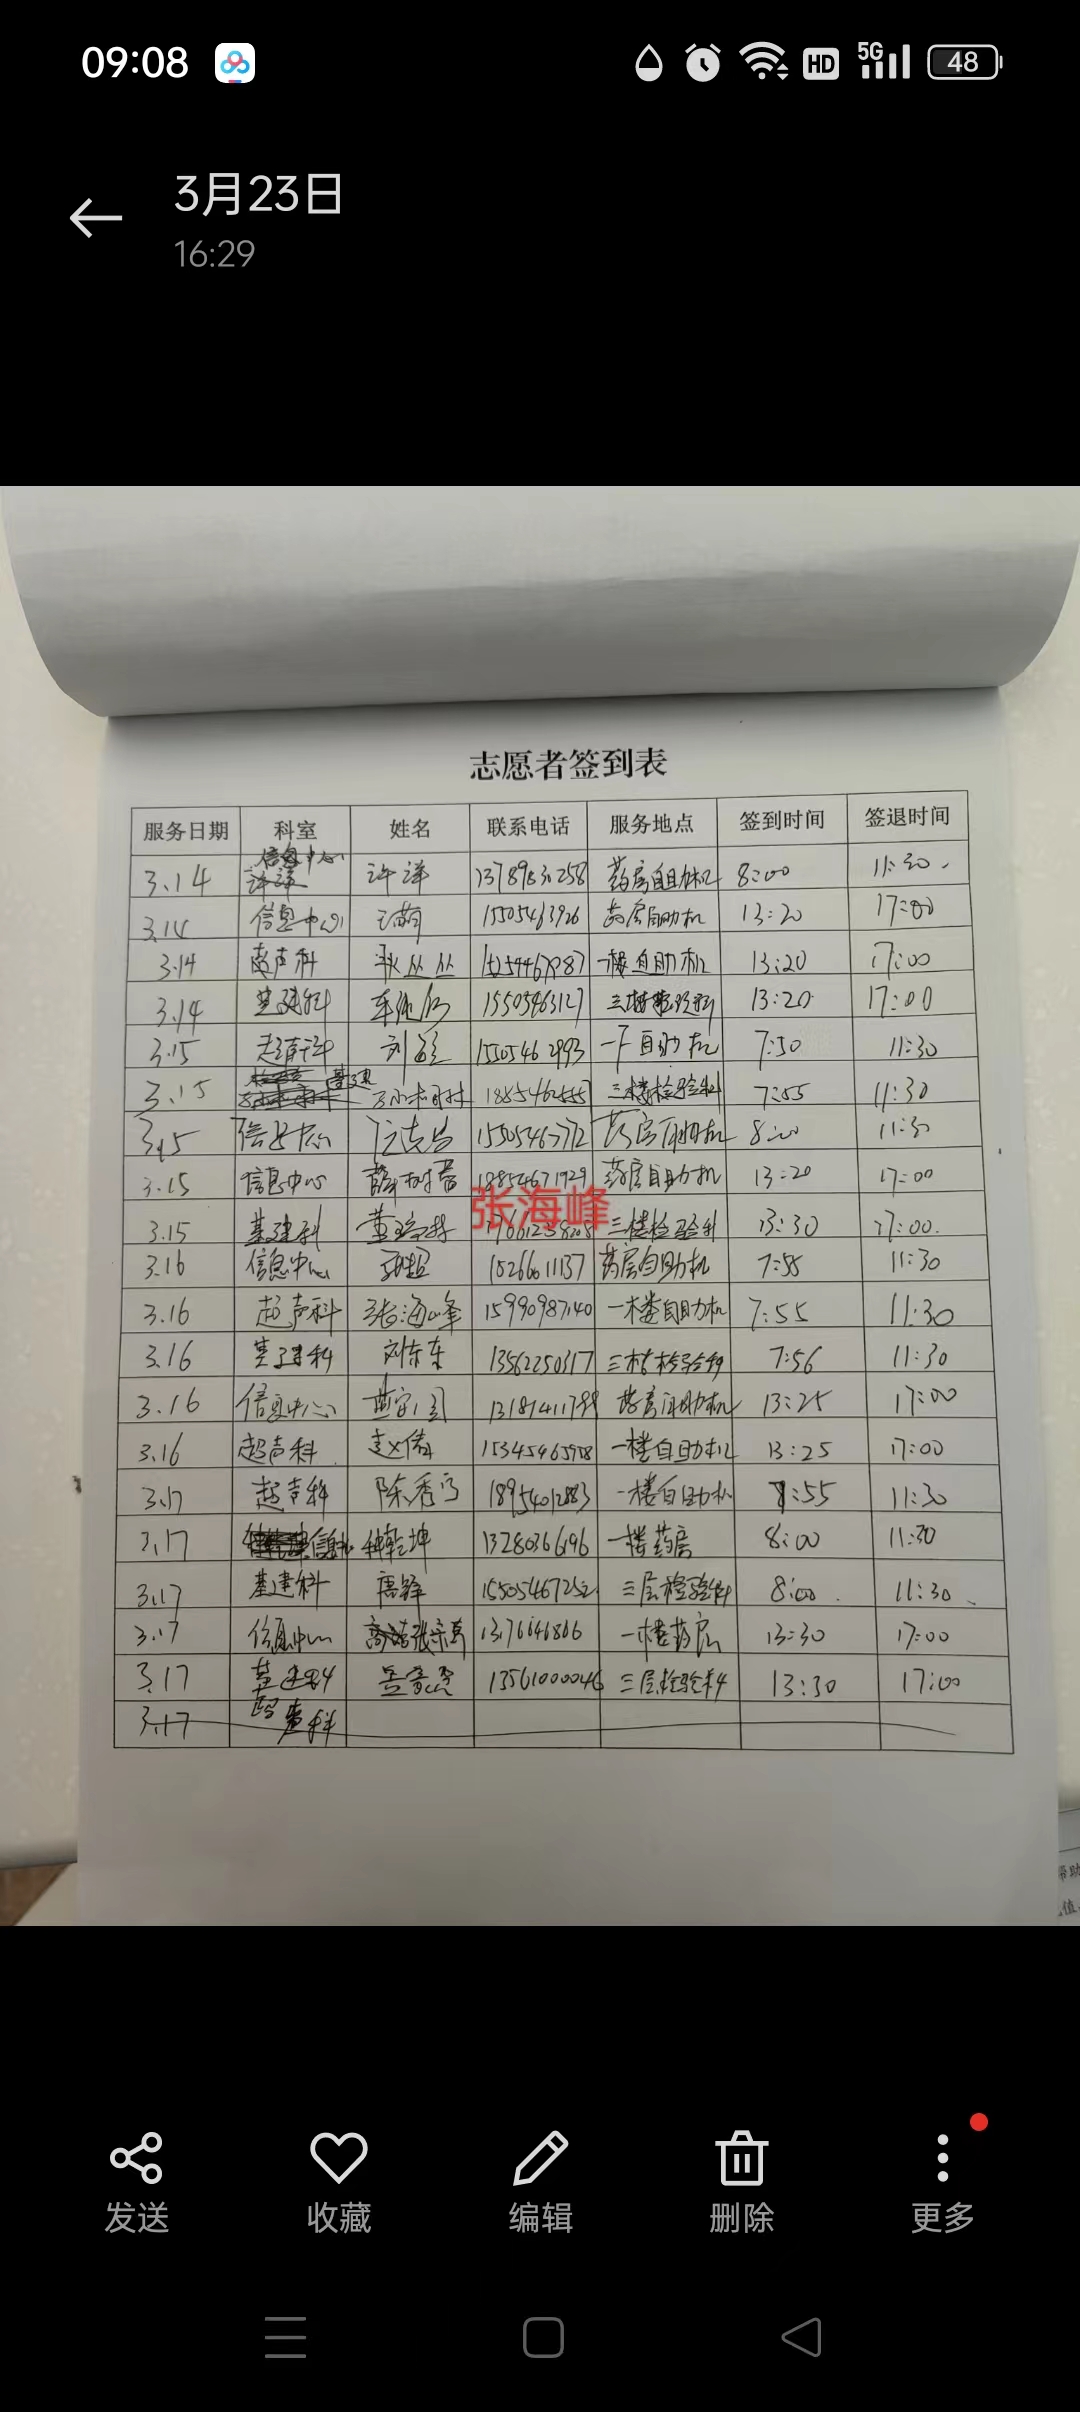 09:08
HD 5G 48
3月23日
16:29
志愿者签到表
服务日期 科室 姓名 联系电话 服务地点 签到时间 签退时间
3.14 信息中心 许洋 药房自助机 8:00 11:30
3.14 信息中心 王萌 15505463926 药房自助机 13:20 17:00
3.14 超声科 丛丛 一楼自助机 13:20 17:00
3.14 基建科 15505463127 三楼检验科 13:20 17:00
3.15 超声科 刘 15505462993 一下自助机 7:50 11:30
3.15 基建 三楼检验科 7:55 11:30
3.15 信息中心 15505467772 药房自助机 8:00 11:30
3.15 信息中心 薛 18854671929 药房自助机 13:20 17:00
张海峰
3.15 基建科 董 三楼检验科 13:30 17:00
3.16 信息中心 张超 15266011137 药房自助机 7:55 11:30
3.16 超声科 张海峰 15990987140 一楼自助机 7:55 11:30
3.16 基建科 刘东东 13562250317 三楼检验科 7:56 11:30
3.16 信息中心 药房自助机 13:25 17:00
3.16 超声科 赵倩 一楼自助机 13:25 17:00
3.17 超声科 陈秀 18954012883 一楼自助机 7:55 11:30
3.17 信息中心 种乾坤 13280366196 一楼药房 8:00 11:30
3.17 基建科 唐锋 15505467252 三层检验科 8:00 11:30
3.17 信息中心 13176646866 一楼药房 13:30 17:00
3.17 基建科 13561000046 三层检验科 13:30 17:00
3.17 超声科
发送 收藏 编辑 删除 更多